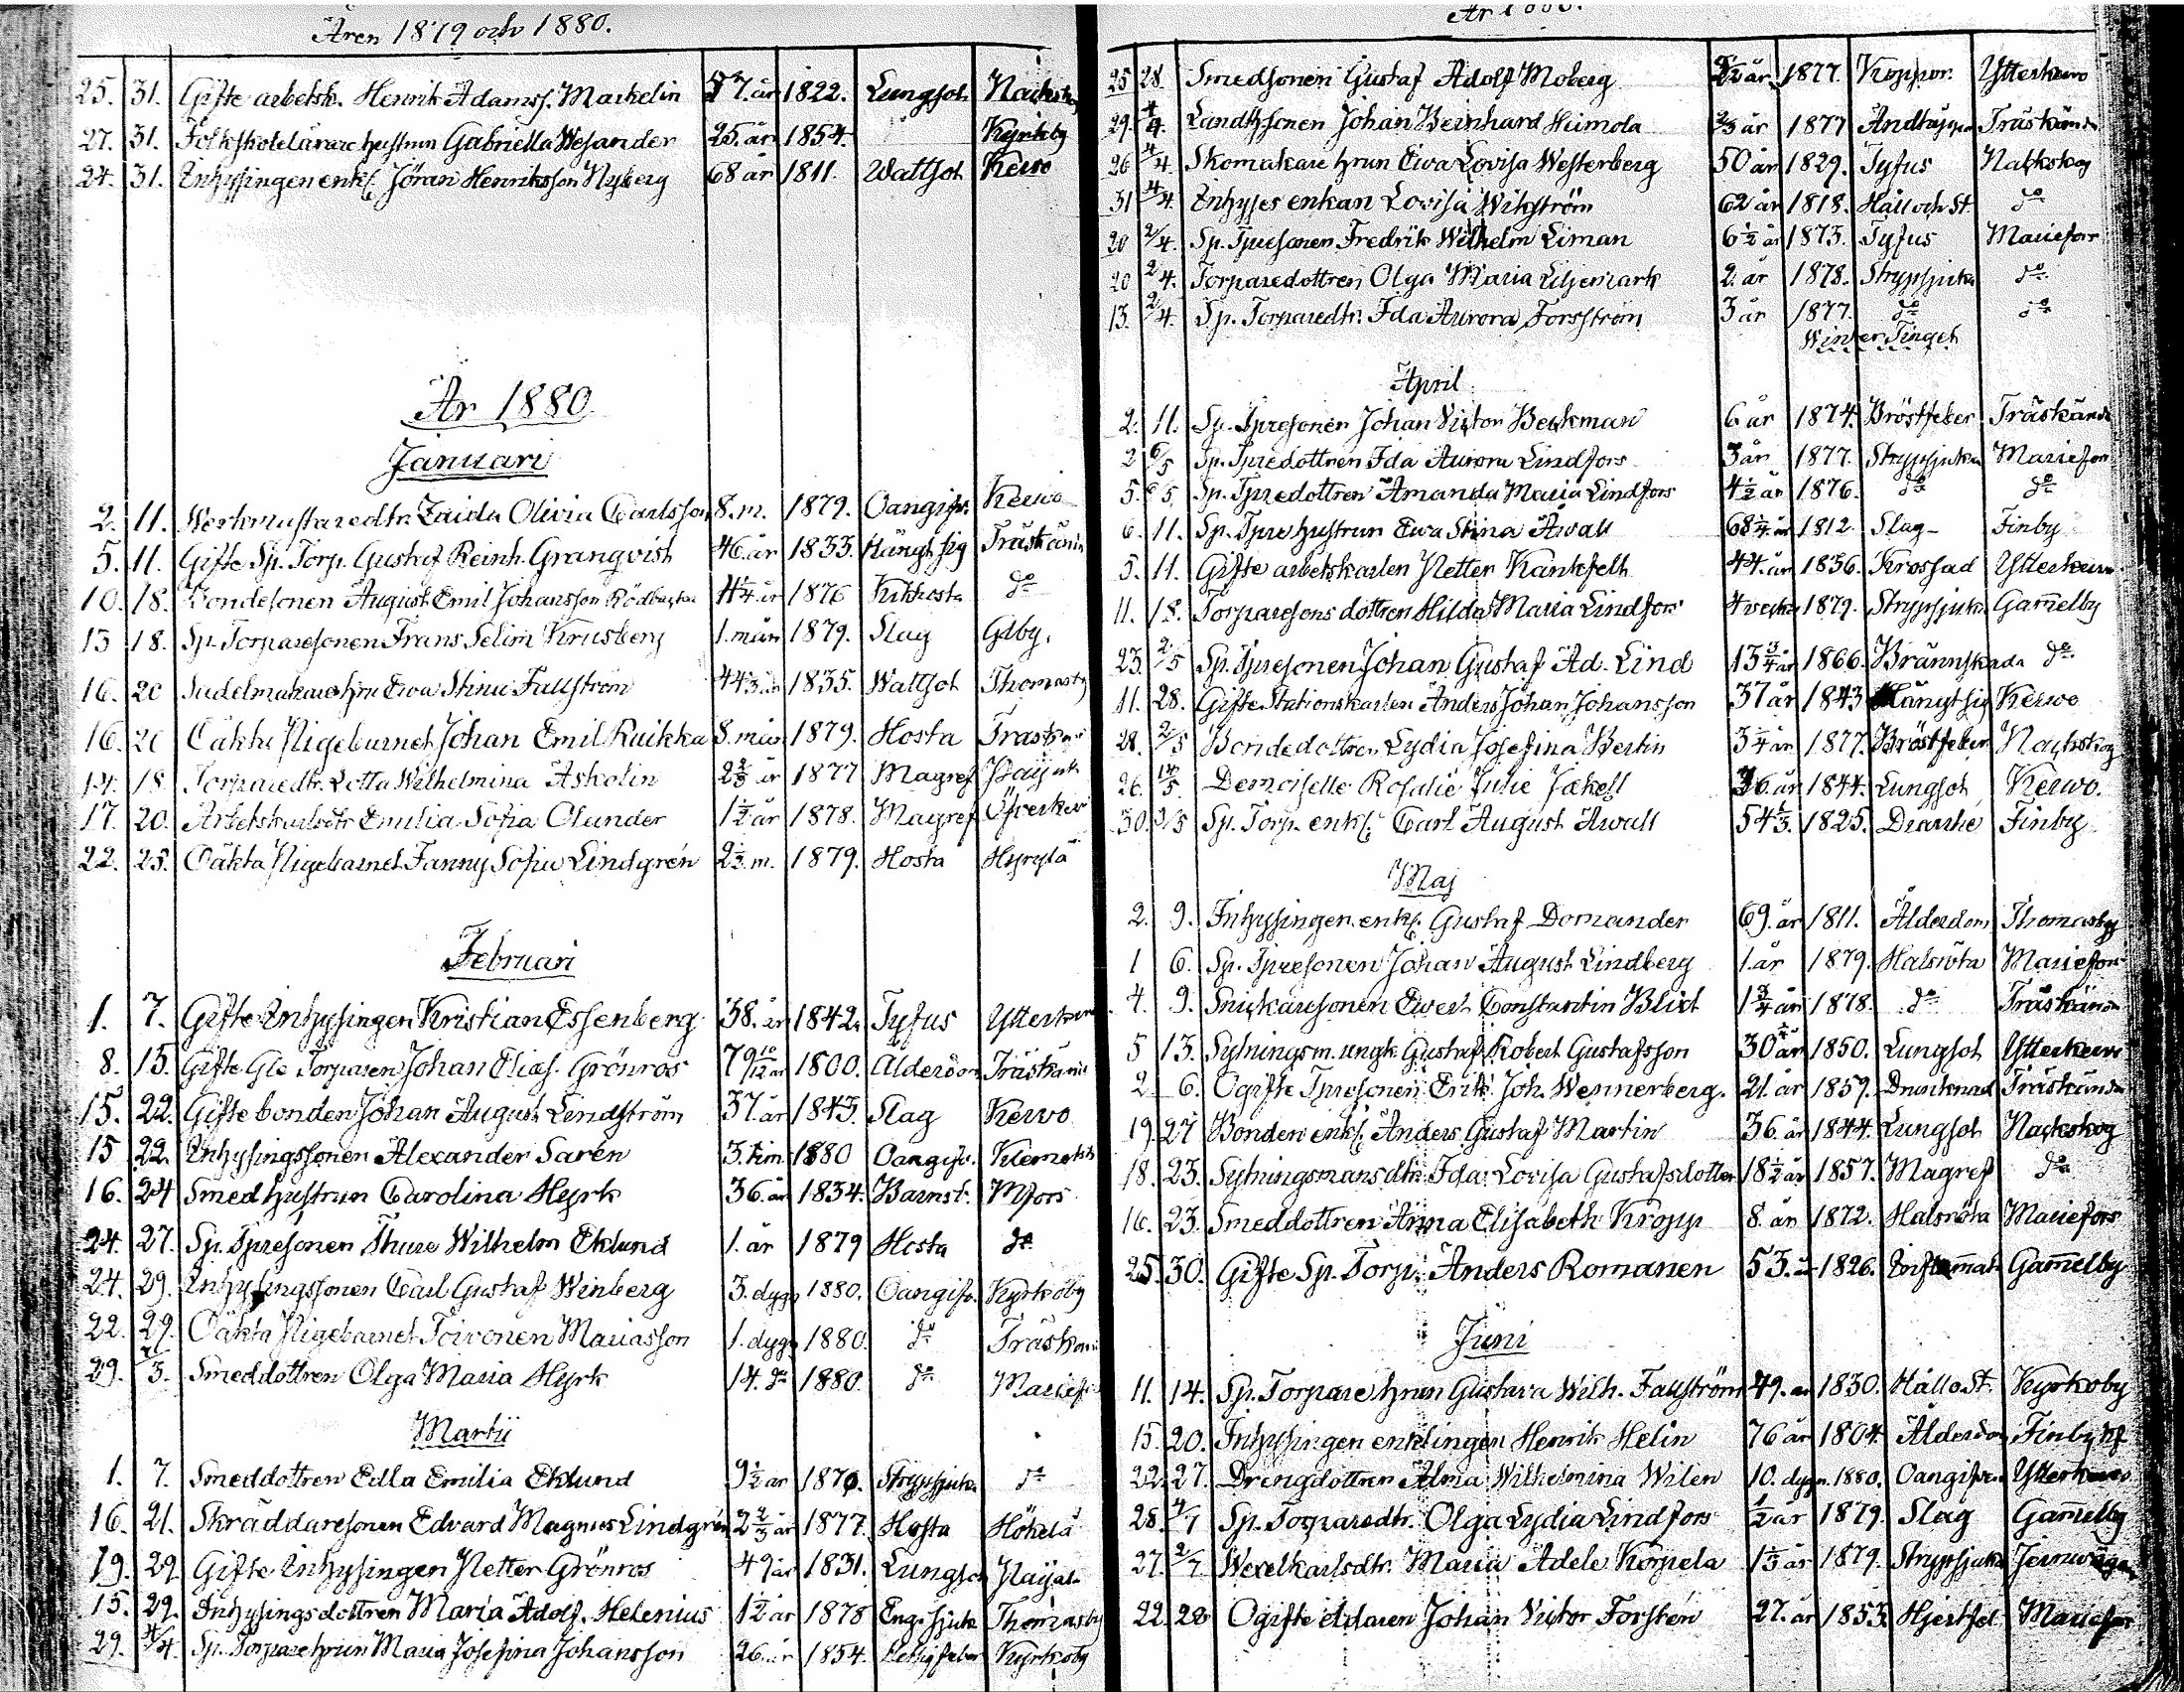 Åren 1879 och 1880.
25. 31. Gifte arbetsk. Henrik Adamss. Markelin 57. år 1822. Lungsot Nackskog
27. 31. Folkskolelärare hustrun Gabriella Wesander 25. år 1854. Kyrkby
24. 31. Inhysingen enkl. Jöran Henriksson Nyberg 68 år 1811. Wattsot Kerwo
År 1880.
Januari
2. 11. Werkmästaredtr. Zaida Olivia Carlsson 8. m. 1879. Oangifv. Kerwo
5. 11. Gifte Sp. Torp. Gustaf Reinh. Granqvist 46. år 1833. Hängt sig Träskända
10. 18. Bondesonen August Emil Johansson Rödbacka 4 1/4 år 1876 Kikhosta do
13 18. Sp. Torparesonen Frans Selim Krusberg 1. mån 1879. Slag Glby.
16. 20 Sadelmakare hru Ewa Stina Fallström 44 1/3 år 1835. Wattsot Thomasby
16. 20 Oäkta Pigebarnet Johan Emil Kuikka 8. mån 1879. Hosta Träskända
14. 18. Torparedtr. Lotta Wilhelmina Askolin 2 2/3 år 1877 Magref
17. 20. Arbetskarlsdtr Emilia Sofia Olander 1 1/2 år 1878. Magref Öfverkerv
22. 25. Oäkta Pigebarnet Fanny Sofia Lindgrén 2 1/2 m. 1879. Hosta Hyrylä
Februari
1. 7. Gifte Inhysingen Kristian Essenberg 38. år 1842. Tyfus Ytterkerv
8. 15. Gifte Gle Torparen Johan Elias. Grönroos 79 10/12 år 1800. Ålderdom Träskända
15. 22. Gifte bonden Johan August Lindström 37. år 1843. Slag Kerwo
15 22 Inhysingssonen Alexander Sarén 3. tim. 1880 Oangifv. Klemetsk
16. 24 Smed hustrun Carolina Hyrk 36. år 1834. Barnsb. Mfors
24. 27. Sp. Tpresonen Thure Wilhelm Eklund 1. år 1879 Hosta do
24. 29. Inhysingssonen Carl Gustaf Winberg 3. dygn 1880. Oangifv. Kyrkoby
22. 29. Oäkta Pigebarnet Toivonen Mariasson 1. dygn 1880. do Träskända
29. 21/3. Smeddottren Olga Maria Hyrk 14. do 1880. do Mariefors
Martii
1. 7. Smeddottren Edla Emilia Eklund 9 1/2 år 1870. Strypsjuka do
16. 21. Skräddaresonen Edvard Magnus Lindgrén 2 2/3 år 1877. Hosta Hökelä
19. 29. Gifte Inhysingen Petter Grönroos 49 år 1831. Lungsot
15. 29. Inhysingsdottren Maria Adolf. Helenius 1 1/2 år 1878 Eng. sjuka Thomasby
29. 4/4 Sp. Torpare hrun Maria Josefina Johansson 26. år 1854. Hetsigfeber Kyrkoby
År 1880.
25 28. Smedsonen Gustaf Adolf Moberg 2 1/2 år 1877. Koppor. Ytterkerwo
29. 4/4. Landthsonen Johan Beinhard Heimola 2/3 år 1877 Andtäppa Träskända
26 4/4. Skomakare hrun Ewa Lovisa Westerberg 50 år 1829. Tyfus Nackskog
31 4/4. Inhyses enkan Lovisa Wikström 62 år 1818. Håll och St. do
20 2/4. Sp. Tpresonen Fredrik Wilhelm Liman 6 1/2 år 1873. Tyfus Mariefors
20 2/4. Torparedottren Olga Maria Liljemark 2. år 1878. Strypsjuka do
13. 2/4. Sp. Torparedtr. Ida Aurora Forsström 3 år 1877. do do
Winter Tinget
April
2. 11. Sp. Tpresonen Johan Victor Beckman 6 år 1874. Bröstfeber Träskända
2 6/5 Sp. Tpredottren Ida Aurora Lindfors 3 år 1877. Strypsjuka Mariefors
5. 6/5. Sp. Tpredottren Amanda Maria Lindfors 4 1/2 år 1876. do do
6. 11. Sp. Tpre hustrun Ewa Stina Åwall 68 1/4 år 1812. Slag Finby
5. 11. Gifte arbetskarlen Petter Kankfelt 44. år 1836. Krossad Ytterkerw
11. 18. Torparesons dottren Hilda Maria Lindfors 4 veckor 1879. Strypsjuka Gamelby
23. 2/5 Sp. Tpresonen Johan Gustaf Ad. Lind 13 3/4 år 1866. Brännskada do
11. 28. Gifte Stationskarlen Anders Johan Johansson 37 år 1843 Hängt sig Kerwo
28. 2/5 Bondedottren Lydia Josefina Berlin 3 1/4 år 1877. Bröstfeber Nackskog
26. 14/5. Demoiselle Rosalie Julie Jakell 36. år 1844. Lungsot Kerwo.
30. 2/5 Sp. Torp. enkl. Carl August Åwall 54 1/3. 1825. Diarrhé Finby
Maj
2. 9. Inhysingen. enkl. Gustaf Domander 69. år 1811. Ålderdom Thomasby
1 6. Sp. Tpresonen Johan August Lindberg 1. år 1879. Halsröta Mariefors
4. 9. Snickaresonen Ewert Constantin Blixt 1 3/4 år 1878. do Träskända
5 13. Sytningsm. ungk. Gustaf Robert Gustafsson 30 år 1850. Lungsot Ytterkerv
2. 6. Ogifte Tpresonen Erik Joh. Wennerberg. 21. år 1859. Drunknad Träskända
19. 27 Bonden enkl. Anders Gustaf Martin 36. år 1844. Lungsot Nackskog
18. 23. Sytningsmansdtr. Ida Lovisa Gustafsdotter 18 1/2 år 1857. Magref do
16. 23. Smeddottren Anna Elisabeth Kropp 8. år 1872. Halsröta Mariefors
25. 30. Gifte Sp. Torp. Anders Romanen 53. år 1826. Gamelby
Juni
11. 14. Sp. Torpare hrun Gustava Wilh. Fallström 49. år 1830. Håll o St. Kyrkoby
15. 20. Inhysingen enklingen Henrik Helin 76 år 1804. Ålderdom Finby
22. 27. Drengdottren Alma Wilhelmina Wilen 10. dygn. 1880. Oangifven Ytterkerwo
28. 4/7 Sp. Torparedtr. Olga Lydia Lindfors 1/2 år 1879. Slag Gamelby
27. 2/7 Wexelkarlsdtr. Maria Adele Korpela 1 1/3 år 1879. Strypsjuka Jernvägen
22. 28 Ogifte eldaren Johan Victor Forstén 27. år 1853. Hjertfel Mariefors